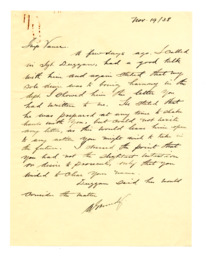 Nov 19/28
Miss Vance
A few days ago I called
on Sgt Duggan had a good talk
with him and again stated that my
sole desire was to bring harmony in the
Dept I showed him the letter you
had written to me. He stated that
he was prepared at any time to shake
hands with you but would not write
any letter, as this would leave him open
to any action you might wish to take in
the future. I stressed the point that
you had not the slightest intention
or desire to prosecute, only that you
wished to clear your name.
Duggan said he would
consider the matter